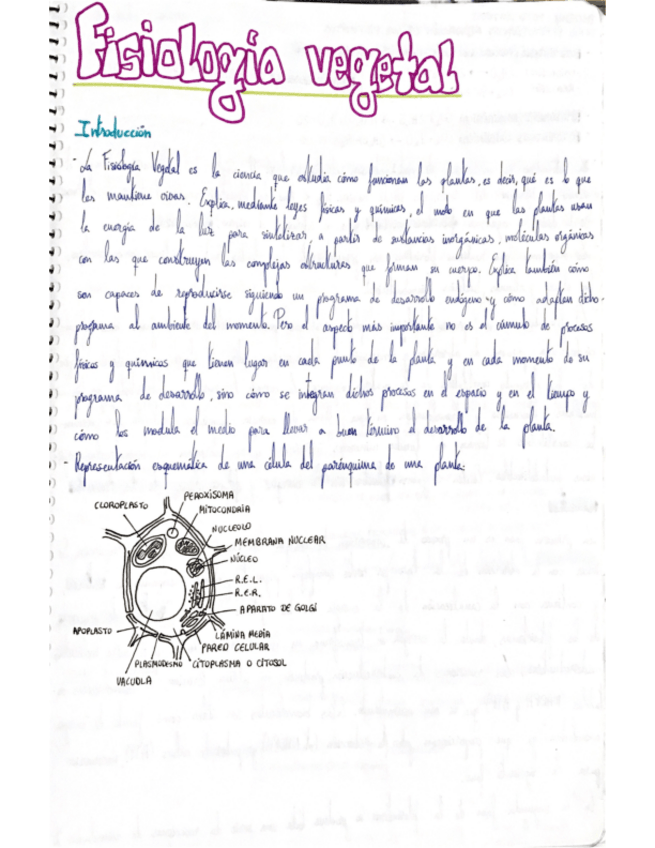 Fisiología vegetal
Introducción
- La Fisiología Vegetal es la ciencia que estudia cómo funcionan las plantas, es decir, qué es lo que
las mantiene vivas. Explica, mediante leyes físicas y químicas, el modo en que las plantas usan
la energía de la luz para sintetizar, a partir de sustancias inorgánicas, moléculas orgánicas
con las que construyen las complejas estructuras que forman su cuerpo. Explica también cómo
son capaces de reproducirse siguiendo un programa de desarrollo endógeno y cómo adaptan dicho
programa al ambiente del momento. Pero el aspecto más importante no es el cúmulo de procesos
físicos y químicos que tienen lugar en cada punto de la planta y en cada momento de su
programa de desarrollo, sino cómo se integran dichos procesos en el espacio y en el tiempo y
cómo los modula el medio para llevar a buen término el desarrollo de la planta.
- Representación esquemática de una célula del parénquima de una planta:
PEROXISOMA
CLOROPLASTO
MITOCONDRIA
NUCLEOLO
MEMBRANA NUCLEAR
NÚCLEO
R.E.L.
R.E.R.
APARATO DE GOLGI
APOPLASTO
LÁMINA MEDIA
PARED CELULAR
PLASMODESMO
CITOPLASMA O CITOSOL
VACUOLA